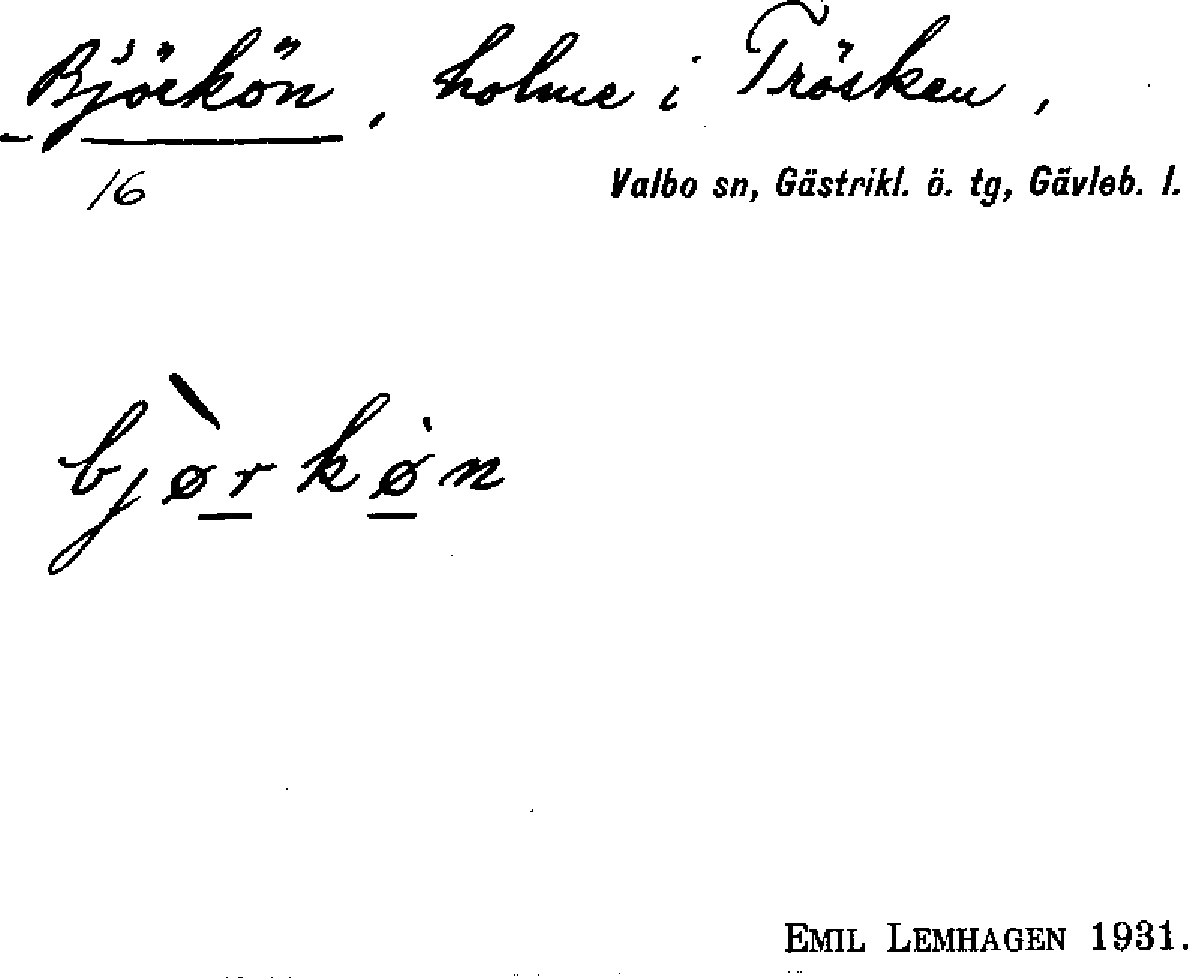 Björkön, holme i Trösken,
16
Valbo sn, Gästrikl. ö. tg, Gävleb. l.
bjø̀rkøn
EMIL LEMHAGEN 1931.